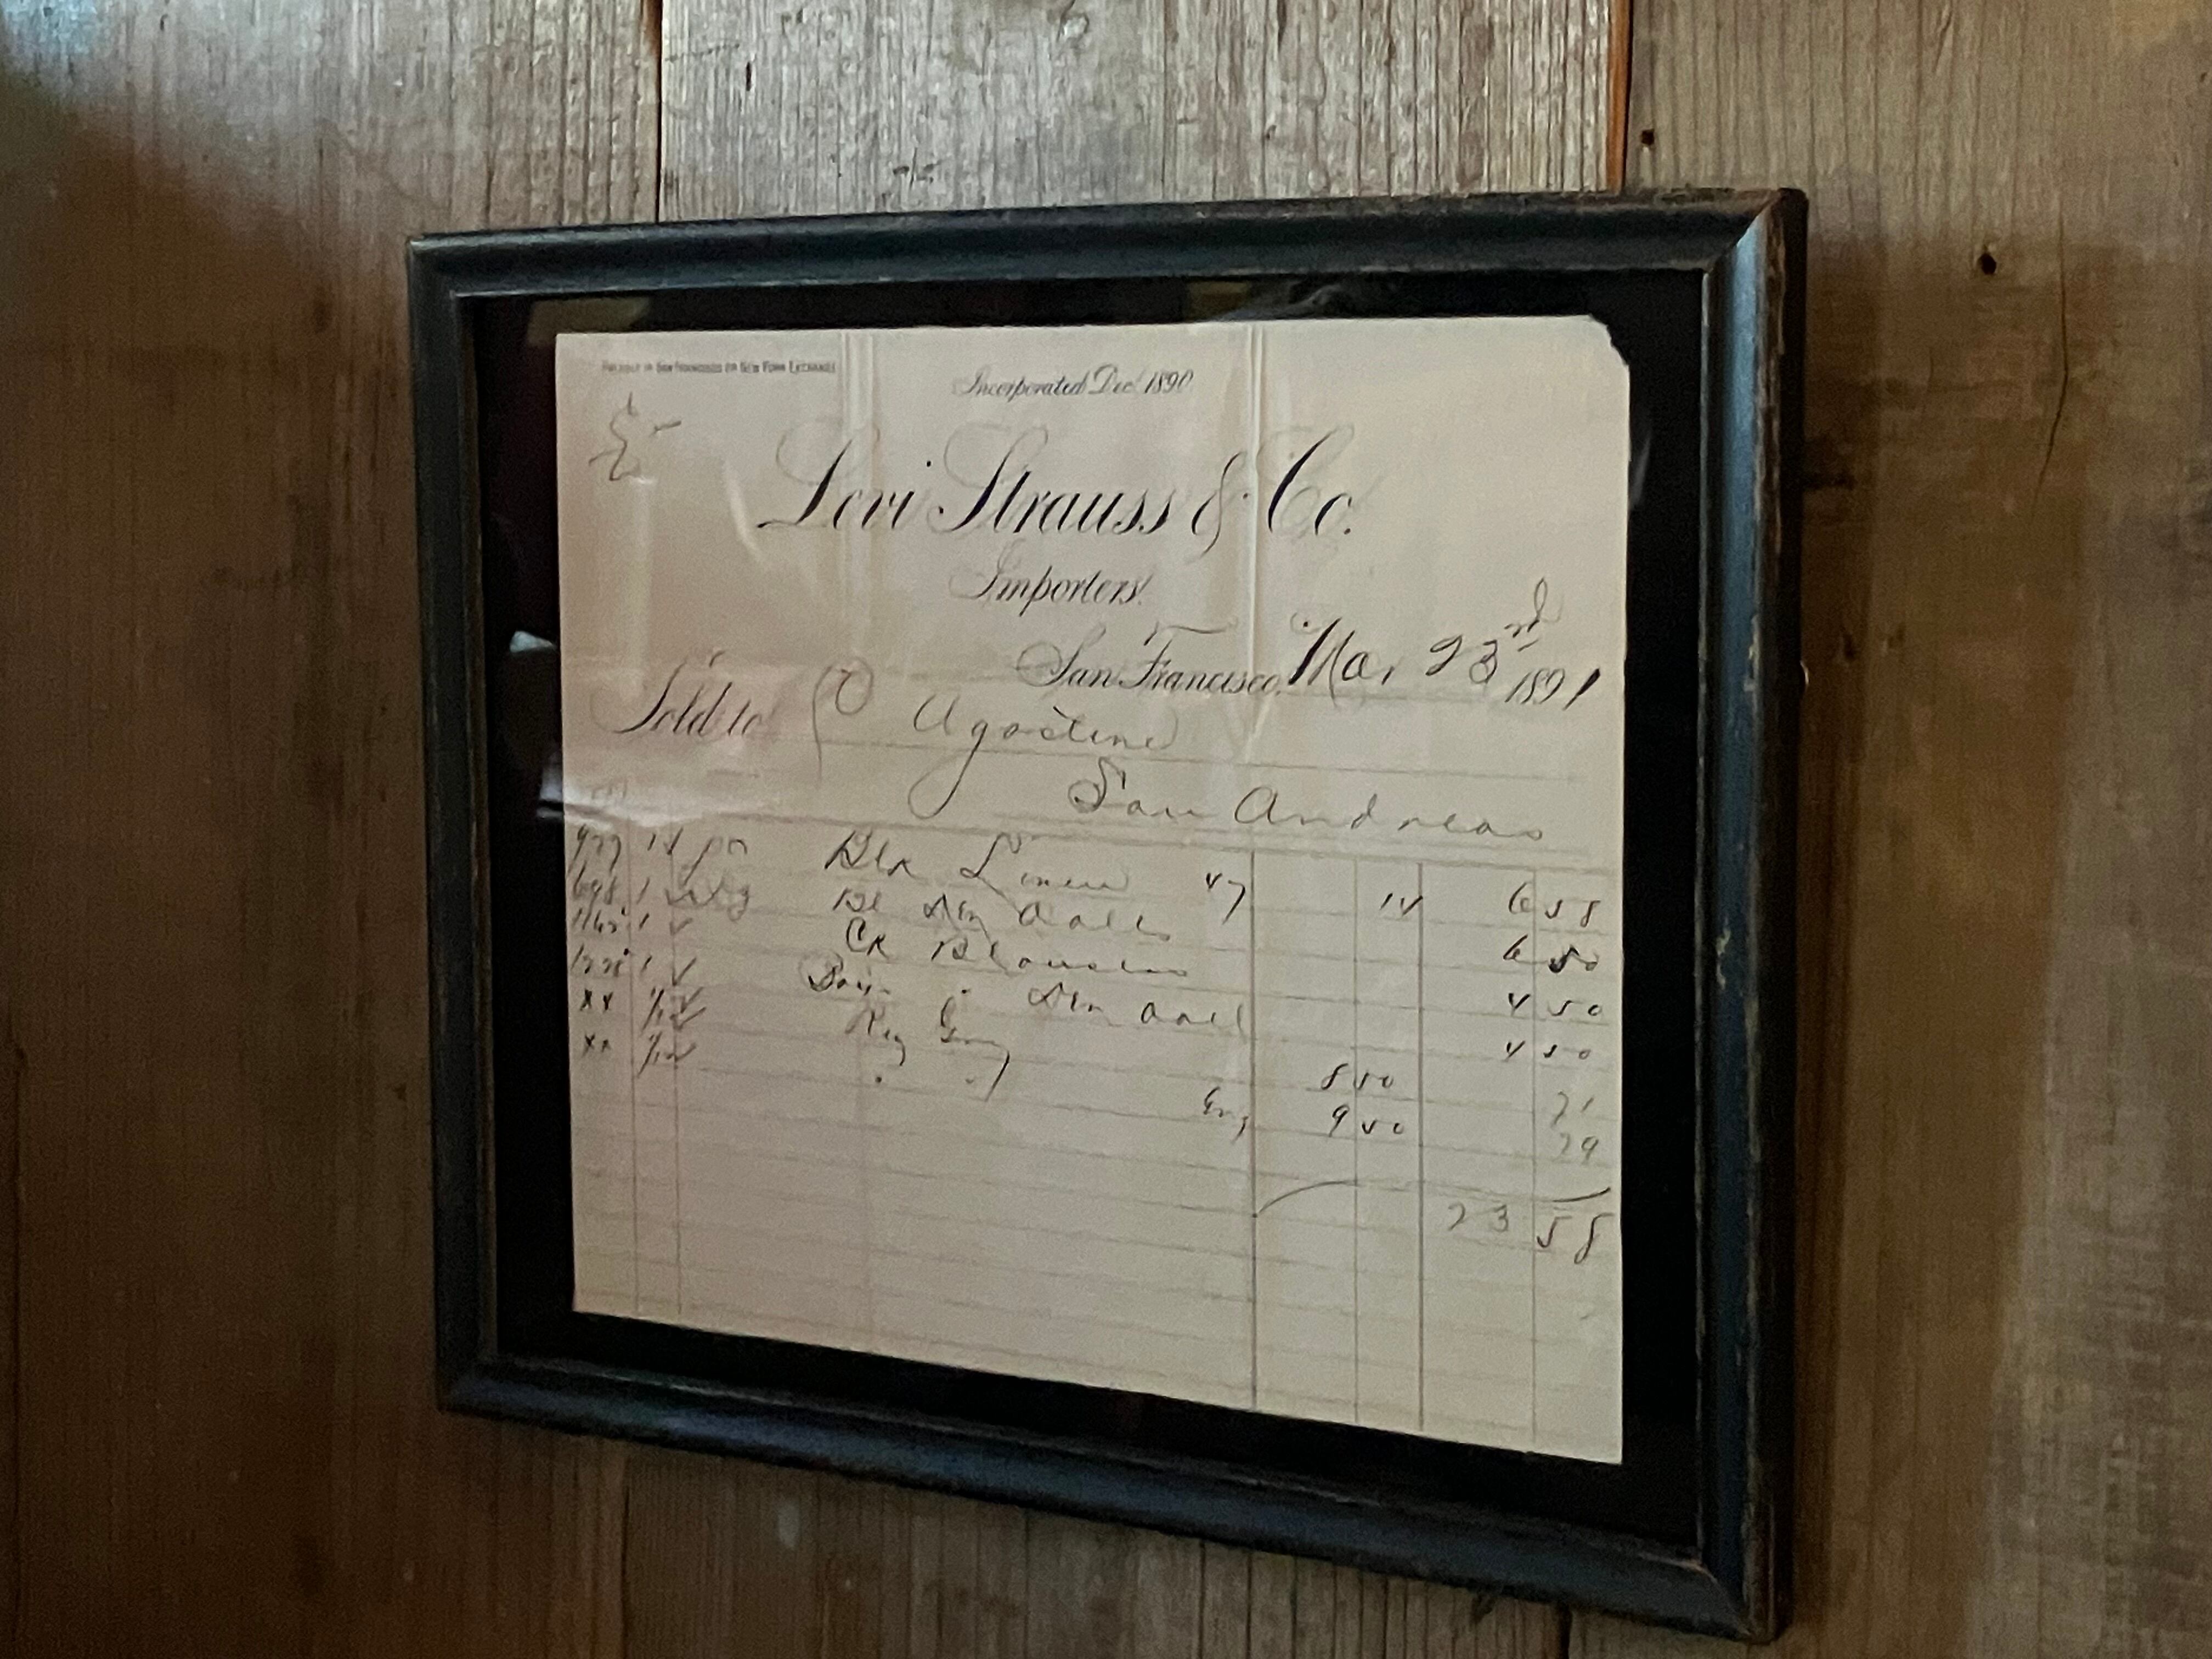 PAYABLE IN SAN FRANCISCO OR NEW YORK EXCHANGE
Incorporated Dec. 1890
Levi Strauss & Co.
Importers.
San Francisco, Mar 23rd 1891
Sold to Agostino
San Andreas
Blk Linen 47 14 6 58
698 1 Bl Dem Oalls 6 50
1 Ck Blouses 4 50
1 Boys Dem Oall 4 50
xx 1/12 8 50 71
xx 1/12 9 50 79
23 58